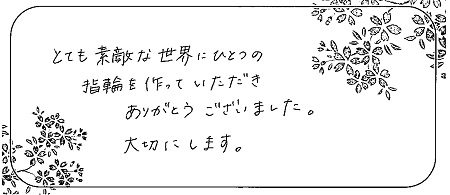 とても素敵な世界にひとつの
指輪を作っていただき
ありがとうございました。
大切にします。